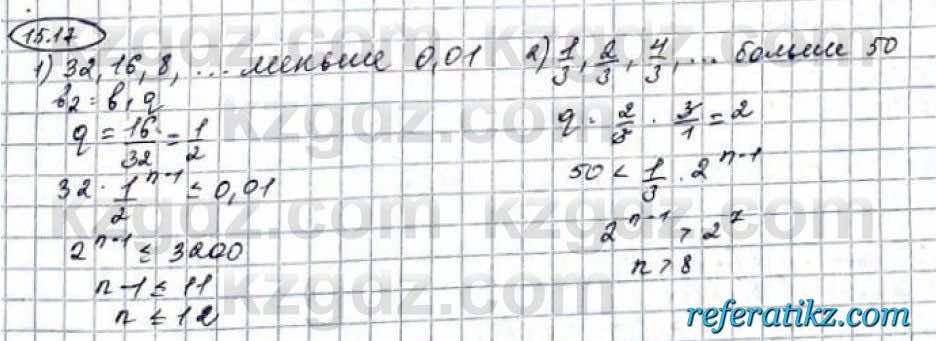 15.17
1) 32, 16, 8, ... меньше 0,01
b₂ = b₁ q
q = 16/32 = 1/2
32 · 1/2^(n-1) ≤ 0,01
2^(n-1) ≤ 3200
n-1 ≤ 11
n ≤ 12
2) 1/3, 2/3, 4/3, ... больше 50
q = 2/3 · 3/1 = 2
50 < 1/3 · 2^(n-1)
2^(n-1) > 2^7
n > 8
kzgdz.com
referatikz.com